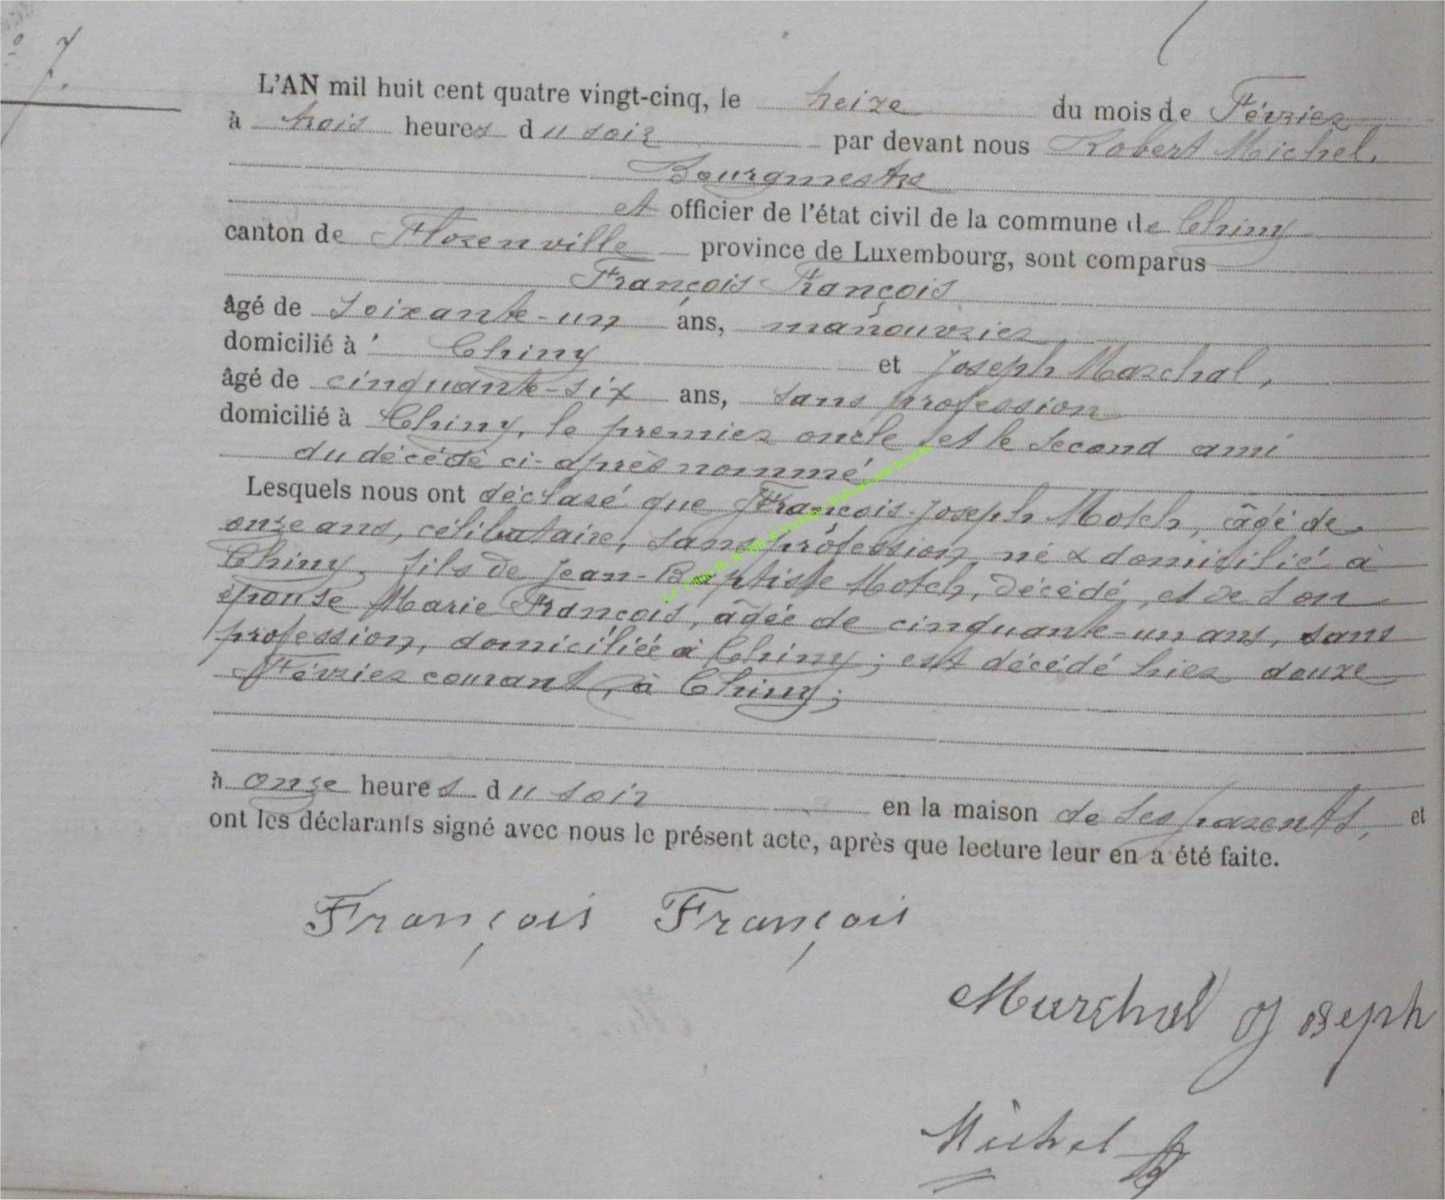 N° 7.
L'AN mil huit cent quatre vingt-cinq, le treize du mois de Février
à trois heures du soir par devant nous Robert Michel,
Bourgmestre
et officier de l'état civil de la commune de Chiny
canton de Florenville province de Luxembourg, sont comparus
François François
âgé de soixante-un ans, manouvrier
domicilié à Chiny et Joseph Marchal,
âgé de cinquante-six ans, sans profession
domicilié à Chiny, le premier oncle et le second ami
du décédé ci-après nommé
Lesquels nous ont déclaré que François-Joseph Motch, âgé de
onze ans, célibataire, sans profession, né & domicilié à
Chiny, fils de Jean-Baptiste Motch, décédé, et de son
épouse Marie François, âgée de cinquante-un ans, sans
profession, domiciliée à Chiny; est décédé hier douze
Février courant, à Chiny;
à onze heures du soir en la maison de ses parents, et
ont les déclarants signé avec nous le présent acte, après que lecture leur en a été faite.
François François
Marchal Joseph
Michel